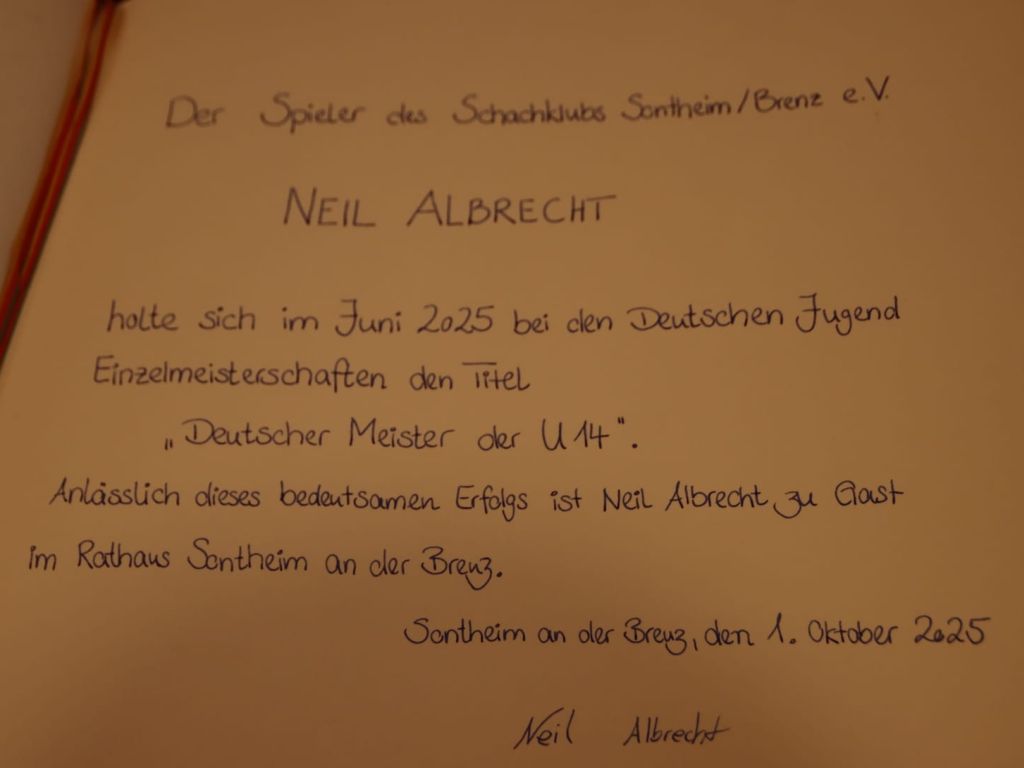 Der Spieler des Schachklubs Sontheim/Brenz e.V.
NEIL ALBRECHT
holte sich im Juni 2025 bei den Deutschen Jugend
Einzelmeisterschaften den Titel
„Deutscher Meister der U14".
Anlässlich dieses bedeutsamen Erfolgs ist Neil Albrecht zu Gast
im Rathaus Sontheim an der Brenz.
Sontheim an der Brenz, den 1. Oktober 2025
Neil Albrecht